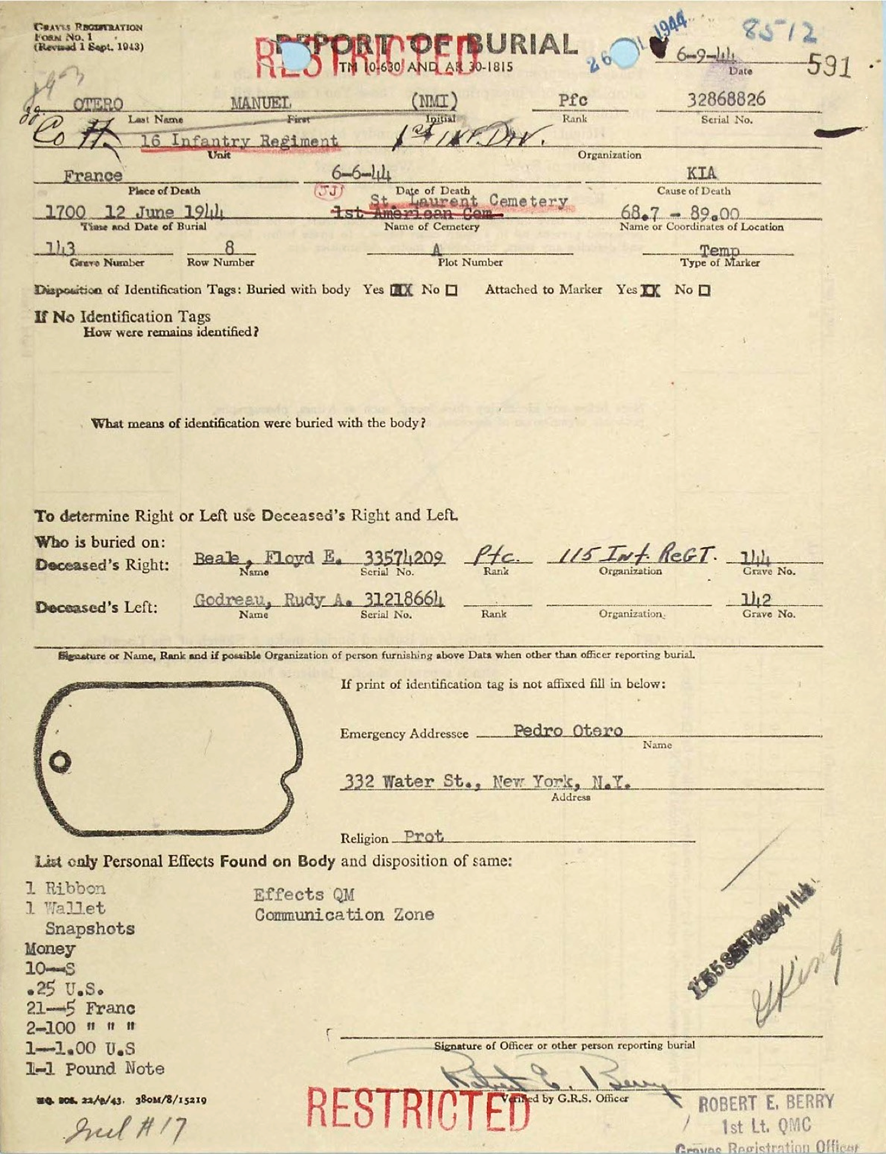 GRAVES REGISTRATION
FORM NO. 1
(Revised 1 Sept. 1943)
RESTRICTED
REPORT OF BURIAL
TM 10-630 AND AR 30-1815
26 1944
8512
6-9-44
Date
591
OTERO MANUEL (NMI) Pfc 32868826
Last Name First Initial Rank Serial No.
Co H. 16 Infantry Regiment 1st INF. DIV.
Unit Organization
France 6-6-44 KIA
Place of Death Date of Death Cause of Death
(JJ) St. Laurent Cemetery
1700 12 June 1944 1st American Cem 68.7 - 89.00
Time and Date of Burial Name of Cemetery Name or Coordinates of Location
143 8 A Temp
Grave Number Row Number Plot Number Type of Marker
Disposition of Identification Tags: Buried with body Yes XX No Attached to Marker Yes XX No
If No Identification Tags
How were remains identified?
What means of identification were buried with the body?
To determine Right or Left use Deceased's Right and Left.
Who is buried on:
Deceased's Right: Beale, Floyd E. 33574209 Pfc. 115 Inf. ReGT. 144
Name Serial No. Rank Organization Grave No.
Deceased's Left: Godreau, Rudy A. 31218664 142
Name Serial No. Rank Organization Grave No.
Signature or Name, Rank and if possible Organization of person furnishing above Data when other than officer reporting burial.
If print of identification tag is not affixed fill in below:
Emergency Addressee Pedro Otero
Name
332 Water St., New York, N.Y.
Address
Religion Prot
List only Personal Effects Found on Body and disposition of same:
1 Ribbon
1 Wallet
Snapshots
Money
10--S
.25 U.S.
21--5 Franc
2-100 " " "
1--1.00 U.S
1-1 Pound Note
Effects QM
Communication Zone
King
Signature of Officer or other person reporting burial
Robert E. Berry
Verified by G.R.S. Officer
HQ. SOS. 22/9/43. 380M/8/15219
RESTRICTED
ROBERT E. BERRY
1st Lt. QMC
Graves Registration Officer
#17